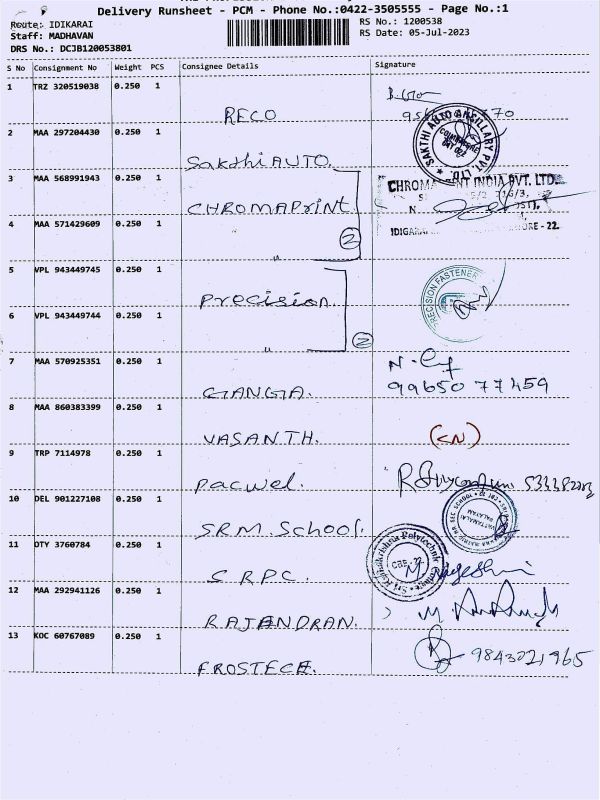 Delivery Runsheet - PCM - Phone No.:0422-3505555 - Page No.:1
Route: IDIKARAI
RS No.: 1200538
Staff: MADHAVAN
RS Date: 05-Jul-2023
DRS No.: DCJB120053801
S No Consignment No Weight PCS Consignee Details Signature
1 TRZ 320519038 0.250 1
RECO
2 MAA 297204430 0.250 1
Sakthi AUTO.
SAKTHI AUTO ANCILLARY PVT. LTD.
3 MAA 568991943 0.250 1
CHROMAPrint
INDIA PVT. LTD.
4 MAA 571429609 0.250 1
2
"
- 22.
5 VPL 943449745 0.250 1
Precision
PRECISION FASTENER
6 VPL 943449744 0.250 1
2
"
7 MAA 570925351 0.250 1
GANGA.
99650 77459
8 MAA 860383399 0.250 1
VASANTH.
(CN)
9 TRP 7114978 0.250 1
Pacwel.
10 DEL 901227108 0.250 1
SRM School.
11 OTY 3760784 0.250 1
SRPC.
Polytechnic
12 MAA 292941126 0.250 1
RAJENDRAN.
13 KOC 60767089 0.250 1
FROSTECH.
9843021965